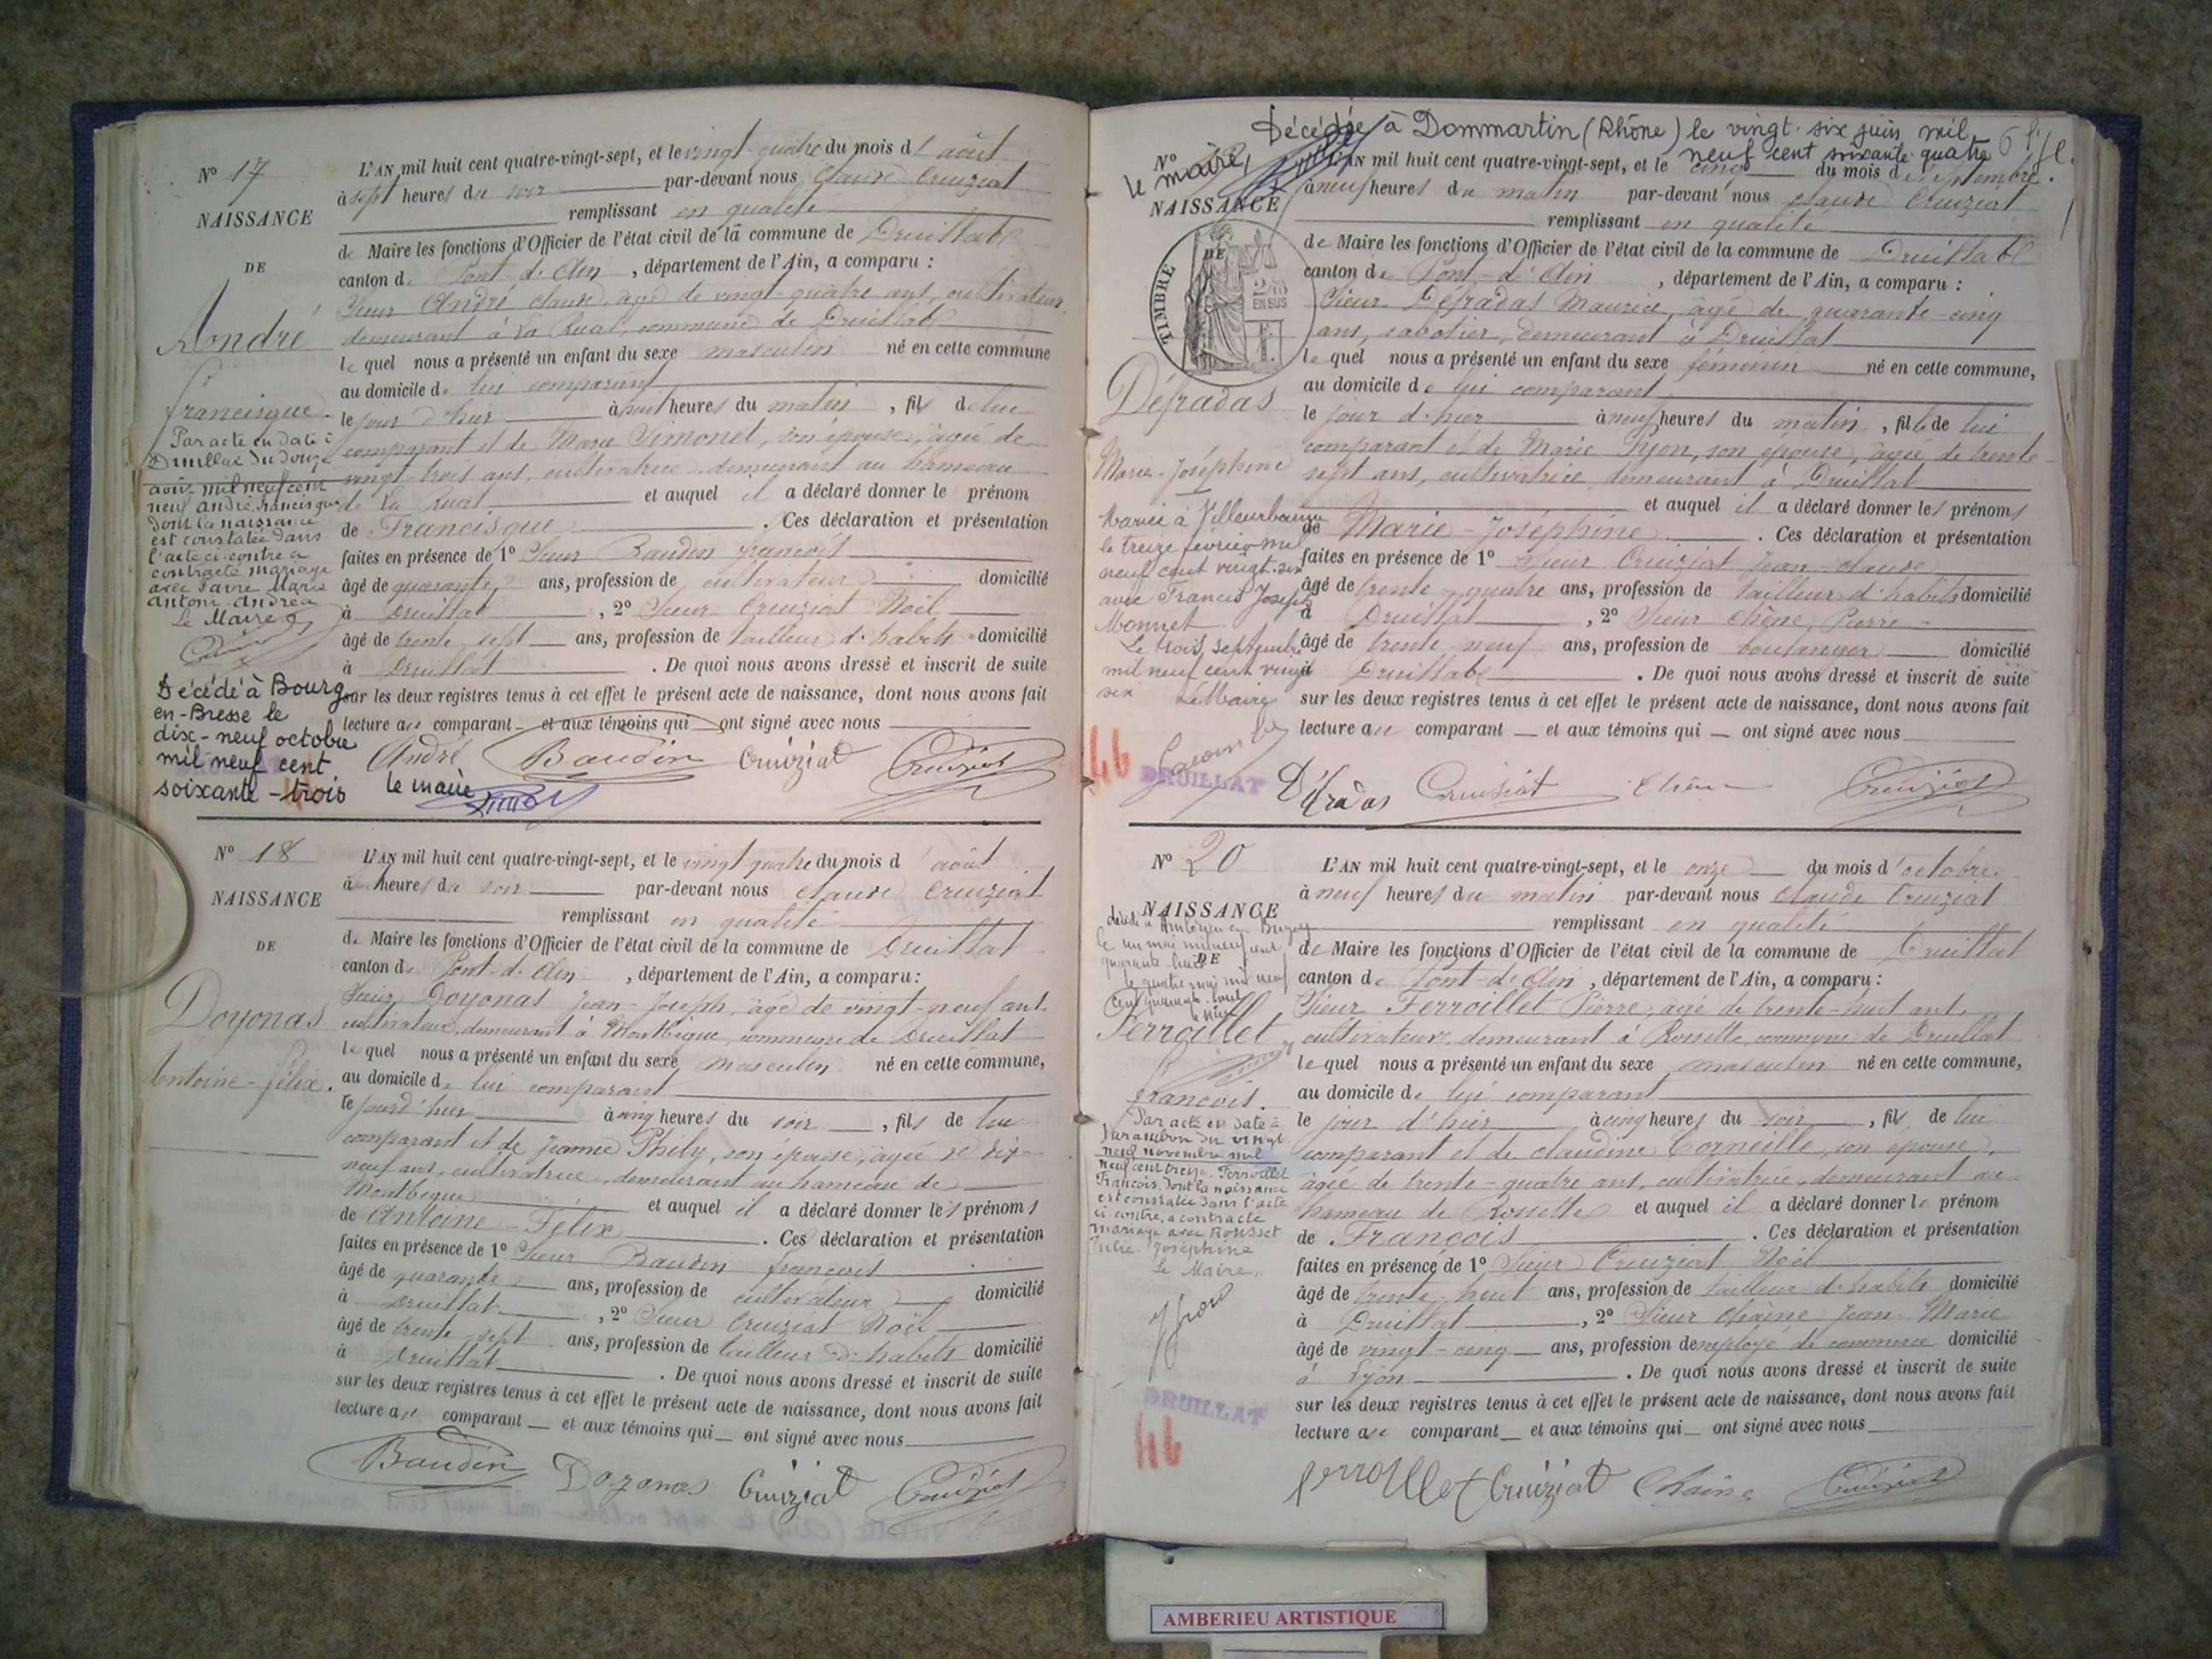 N° 17
NAISSANCE
DE
André
Francisque
Par acte en date à
Druillat du douze
août mil neuf cent
neuf André Francisque
dont la naissance
est constatée dans
l'acte ci-contre a
contracté mariage
avec Favre Marie
Antoni-Andréa
Le Maire
Décédé à Bourg-
en-Bresse le
dix-neuf octobre
mil neuf cent
soixante-trois
le maire
L'AN mil huit cent quatre-vingt-sept, et le vingt-quatre du mois d'août
à sept heures du soir par-devant nous Claude Cruiziat
remplissant en qualité
de Maire les fonctions d'Officier de l'état civil de la commune de Druillat
canton de Pont-d'Ain, département de l'Ain, a comparu :
Sieur André Claude, âgé de vingt-quatre ans, cultivateur,
demeurant à La Ruat, commune de Druillat
le quel nous a présenté un enfant du sexe masculin né en cette commune
au domicile de lui comparant
le jour d'hier à huit heures du matin, fils de lui
comparant et de Marie Simonet, son épouse, âgée de
vingt-trois ans, cultivatrice, demeurant au hameau
de La Ruat et auquel il a déclaré donner le prénom
de Francisque. Ces déclaration et présentation
faites en présence de 1° Sieur Baudin François
âgé de quarante ans, profession de cultivateur domicilié
à Druillat, 2° Sieur Cruiziat Noël
âgé de trente sept ans, profession de tailleur d'habits domicilié
à Druillat. De quoi nous avons dressé et inscrit de suite
sur les deux registres tenus à cet effet le présent acte de naissance, dont nous avons fait
lecture au comparant et aux témoins qui ont signé avec nous
André Baudin Cruiziat Cruiziat
N° 18
NAISSANCE
DE
Doyonas
Antoine-Félix.
L'AN mil huit cent quatre-vingt-sept, et le vingt-quatre du mois d'août
à heures du soir par-devant nous Claude Cruiziat
remplissant en qualité
de Maire les fonctions d'Officier de l'état civil de la commune de Druillat
canton de Pont-d'Ain, département de l'Ain, a comparu :
Sieur Doyonas Jean-Joseph, âgé de vingt-neuf ans,
cultivateur, demeurant à Montbègue, commune de Druillat
le quel nous a présenté un enfant du sexe masculin né en cette commune,
au domicile de lui comparant
le jour d'hier à cinq heures du soir, fils de lui
comparant et de Jeanne Phily, son épouse, âgée de dix-
neuf ans, cultivatrice, demeurant au hameau de
Montbègue et auquel il a déclaré donner les prénoms
de Antoine-Félix. Ces déclaration et présentation
faites en présence de 1° Sieur Baudin François
âgé de quarante ans, profession de cultivateur domicilié
à Druillat, 2° Sieur Cruiziat Noël
âgé de trente-sept ans, profession de tailleur d'habits domicilié
à Druillat. De quoi nous avons dressé et inscrit de suite
sur les deux registres tenus à cet effet le présent acte de naissance, dont nous avons fait
lecture au comparant et aux témoins qui ont signé avec nous
Baudin Doyonas Cruiziat Cruiziat
Décédée à Dommartin (Rhône) le vingt-six juin mil
neuf cent soixante quatre
le maire,
N°
NAISSANCE
DE
TIMBRE
EN SUS
Défradas
Marie-Joséphine
Mariée à Villeurbanne
le treize février mil
neuf cent vingt-six
avec Francis Joseph
Monnet
Le trois septembre
mil neuf cent vingt
six
Le Maire
DRUILLAT
L'AN mil huit cent quatre-vingt-sept, et le cinq du mois de septembre
à neuf heures du matin par-devant nous Claude Cruiziat
remplissant en qualité
de Maire les fonctions d'Officier de l'état civil de la commune de Druillat
canton de Pont-d'Ain, département de l'Ain, a comparu :
Sieur Défradas Maurice, âgé de quarante-cinq
ans, sabotier, demeurant à Druillat
le quel nous a présenté un enfant du sexe féminin né en cette commune,
au domicile de lui comparant
le jour d'hier à neuf heures du matin, fille de lui
comparant et de Marie Pyon, son épouse, âgée de trente-
sept ans, cultivatrice, demeurant à Druillat
et auquel il a déclaré donner les prénoms
de Marie-Joséphine. Ces déclaration et présentation
faites en présence de 1° Sieur Cruiziat Jean-Claude
âgé de trente-quatre ans, profession de tailleur d'habits domicilié
à Druillat, 2° Sieur Chêne Pierre
âgé de trente neuf ans, profession de boulanger domicilié
à Druillat. De quoi nous avons dressé et inscrit de suite
sur les deux registres tenus à cet effet le présent acte de naissance, dont nous avons fait
lecture au comparant et aux témoins qui ont signé avec nous
Défradas Cruisiat Chêne Cruiziat
N° 20
NAISSANCE
DE
décédé à Ambérieu en Bugey
le un mai mil neuf cent
quarante huit
le quatre mai mil neuf
cent quarante-huit
Ferroillet
François.
Par acte en date à
Varambon du vingt
neuf novembre mil
neuf cent treize. Ferroillet
François, dont la naissance
est constatée dans l'acte
ci-contre, a contracté
mariage avec Rousset
Julie-Joséphine
Le Maire,
DRUILLAT
L'AN mil huit cent quatre-vingt-sept, et le onze du mois d'octobre
à neuf heures du matin par-devant nous Claude Cruiziat
remplissant en qualité
de Maire les fonctions d'Officier de l'état civil de la commune de Druillat
canton de Pont-d'Ain, département de l'Ain, a comparu :
Sieur Ferroillet Pierre, âgé de trente-huit ans,
cultivateur, demeurant à Rossette, commune de Druillat
le quel nous a présenté un enfant du sexe masculin né en cette commune,
au domicile de lui comparant
le jour d'hier à cinq heures du soir, fils de lui
comparant et de Claudine Corneille, son épouse,
âgée de trente-quatre ans, cultivatrice, demeurant au
hameau de Rossette et auquel il a déclaré donner le prénom
de François. Ces déclaration et présentation
faites en présence de 1° Sieur Cruiziat Noël
âgé de trente-huit ans, profession de tailleur d'habits domicilié
à Druillat, 2° Sieur Chaîne Jean-Marie
âgé de vingt-cinq ans, profession d'employé de commerce domicilié
à Lyon. De quoi nous avons dressé et inscrit de suite
sur les deux registres tenus à cet effet le présent acte de naissance, dont nous avons fait
lecture au comparant et aux témoins qui ont signé avec nous
Ferroillet Cruiziat Chaîne Cruiziat
AMBERIEU ARTISTIQUE